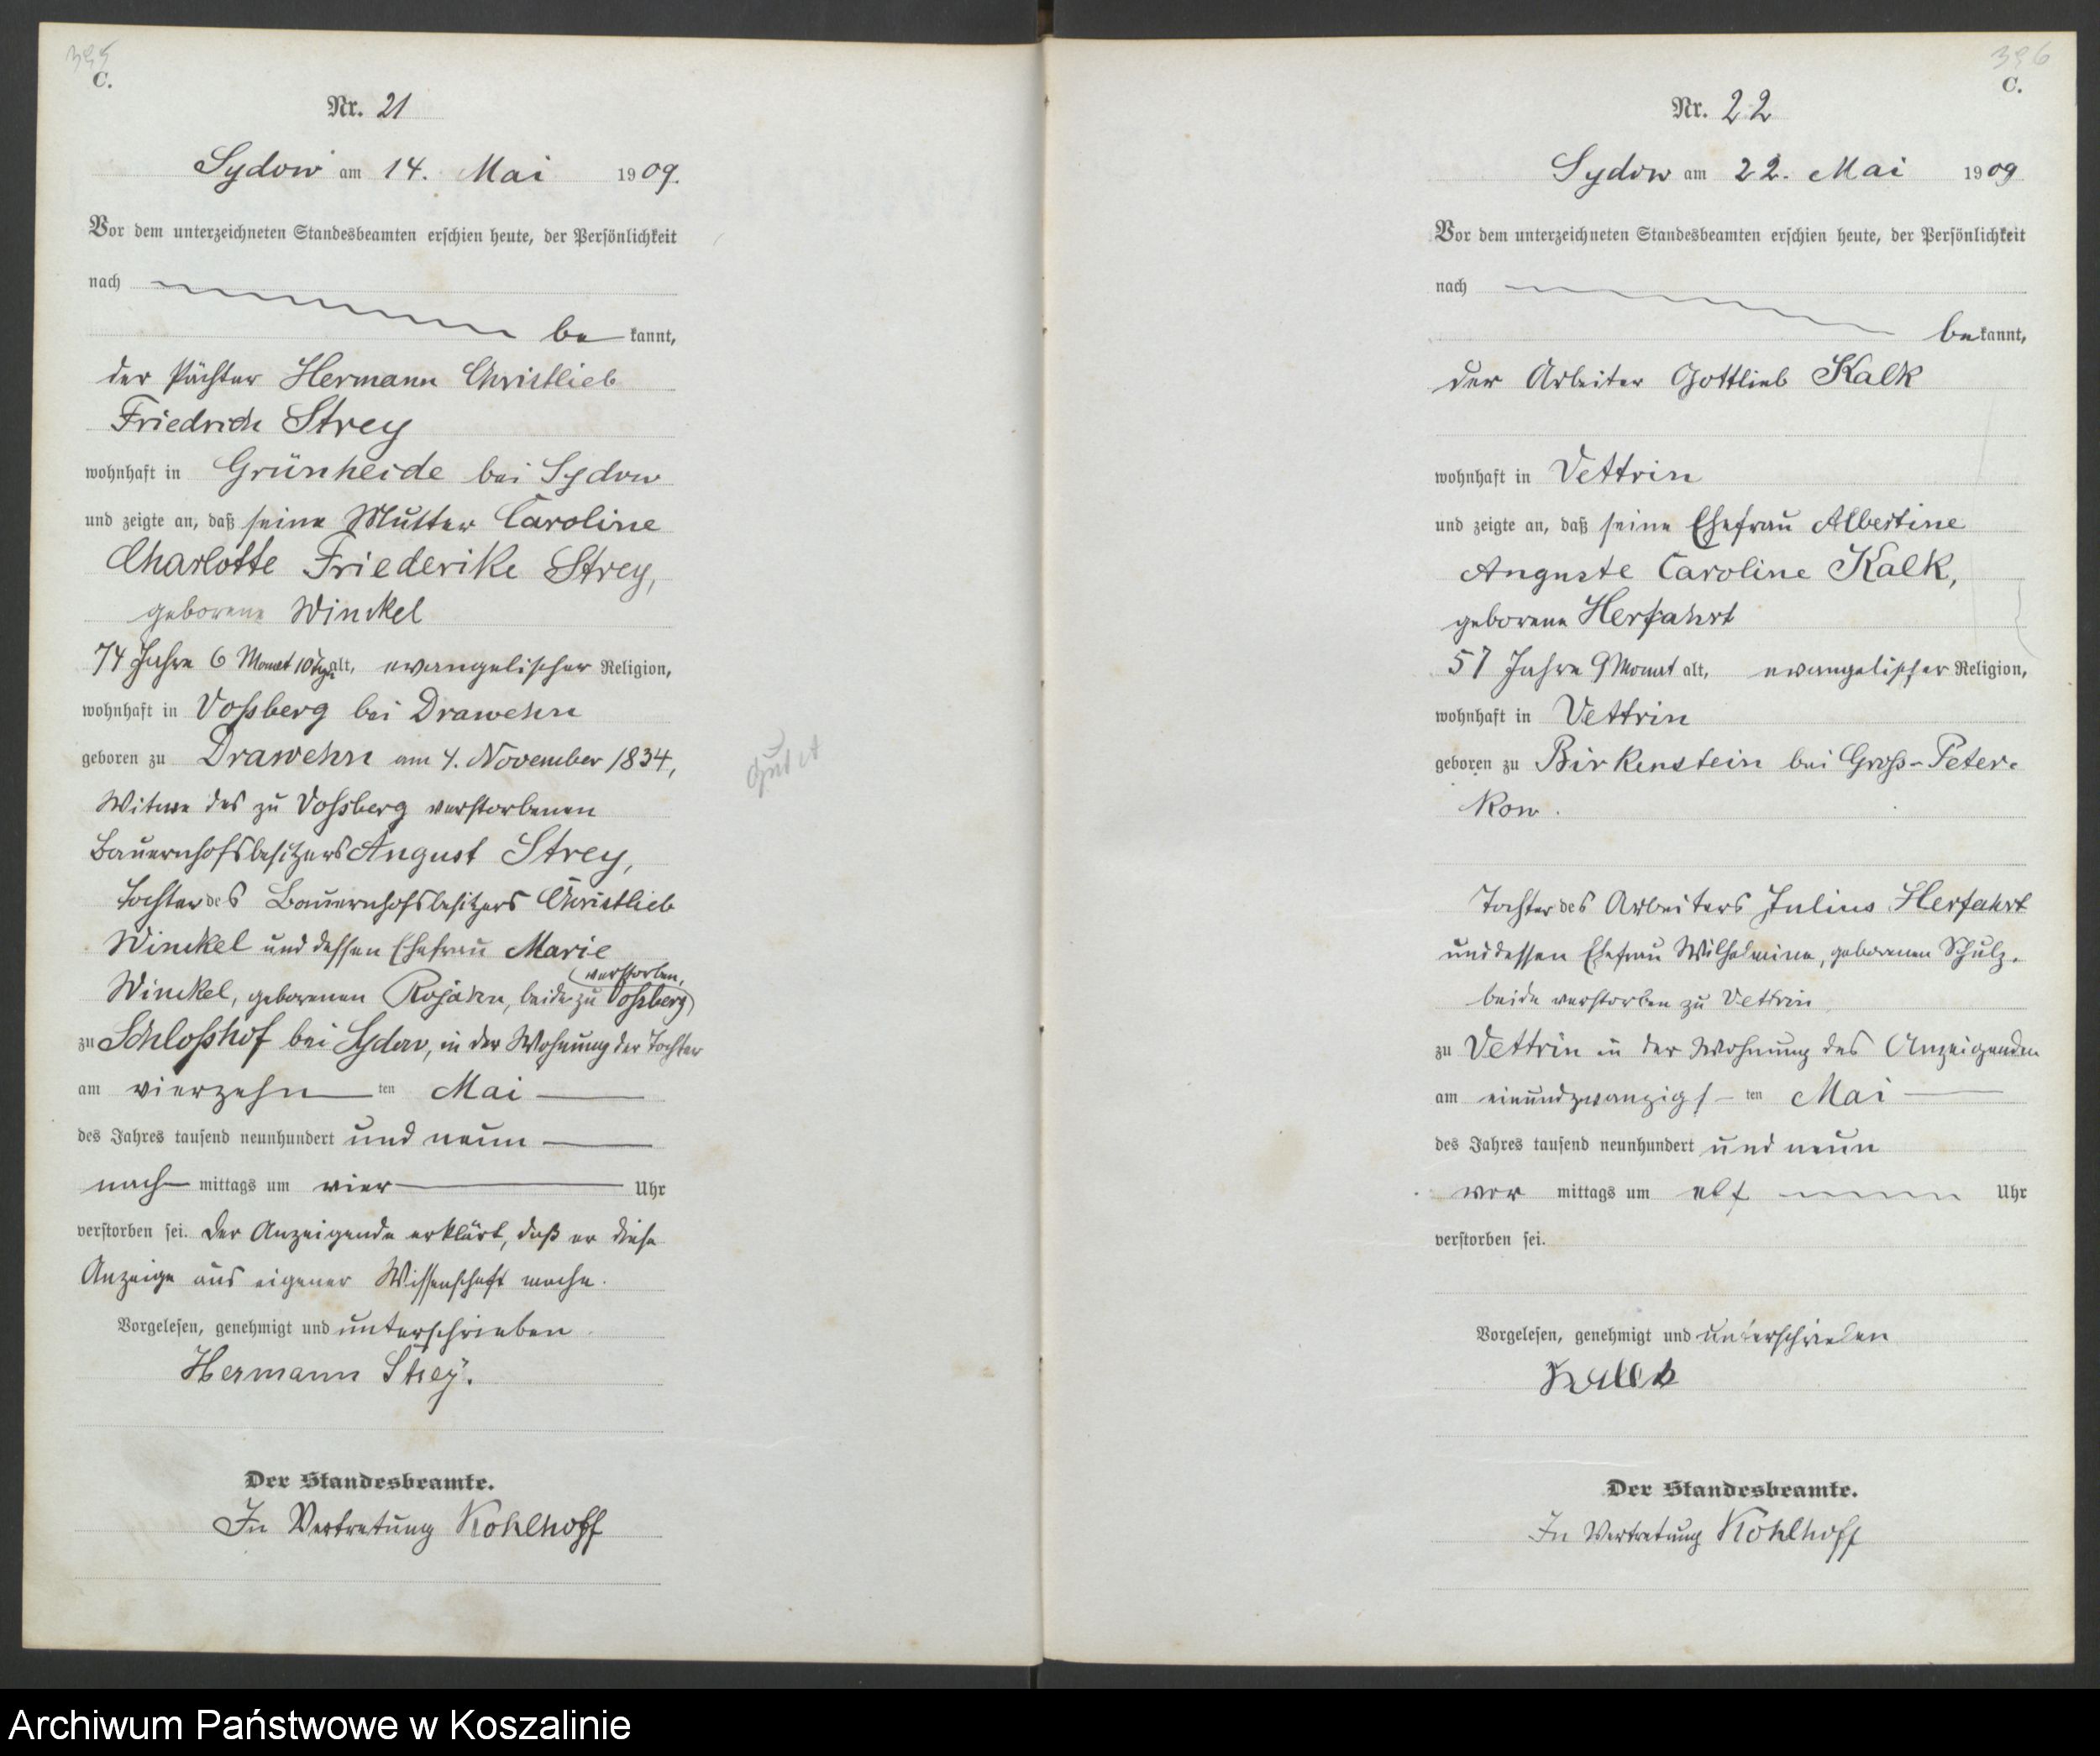 395
C.
Nr. 21
Sydow am 14. Mai 1909.
Vor dem unterzeichneten Standesbeamten erschien heute, der Persönlichkeit
nach
be kannt,
der Pächter Hermann Christlieb
Friedrich Strey
wohnhaft in Grünheide bei Sydow
und zeigte an, daß seine Mutter Caroline
Charlotte Friederike Strey,
geborene Winckel
74 Jahre 6 Monat 10 Tage alt, evangelischer Religion,
wohnhaft in Voßberg bei Drawehn
geboren zu Drawehn am 4. November 1834,
Witwe des zu Voßberg verstorbenen
Bauernhofsbesitzers August Strey,
Tochter des Bauernhofsbesitzers Christlieb
Winckel und dessen Ehefrau Marie
Winckel, geborenen Rojahn, beide zu Voßberg
verstorben,
zu Schloßhof bei Sydow, in der Wohnung der Tochter
am vierzehn ten Mai
des Jahres tausend neunhundert und neun
nach mittags um vier Uhr
verstorben sei. Der Anzeigende erklärt, daß er diese
Anzeige aus eigener Wissenschaft mache.
Vorgelesen, genehmigt und unterschrieben
Hermann Strey.
Der Standesbeamte.
In Vertretung Kohlhoff
396
C.
Nr. 22
Sydow am 22. Mai 1909
Vor dem unterzeichneten Standesbeamten erschien heute, der Persönlichkeit
nach
be kannt,
der Arbeiter Gottlieb Kalk
wohnhaft in Vettrin
und zeigte an, daß seine Ehefrau Albertine
Auguste Caroline Kalk,
geborene Herfahrt
57 Jahre 9 Monat alt, evangelischer Religion,
wohnhaft in Vettrin
geboren zu Birkenstein bei Groß-Peter-
kow.
Tochter des Arbeiters Julius Herfahrt
und dessen Ehefrau Wilhelmine, geborenen Schulz,
beide verstorben zu Vettrin
zu Vettrin in der Wohnung des Anzeigenden
am einundzwanzigs ten Mai
des Jahres tausend neunhundert und neun
vor mittags um elf Uhr
verstorben sei.
Vorgelesen, genehmigt und unterschrieben
Kallk
Der Standesbeamte.
In Vertretung Kohlhoff
Archiwum Państwowe w Koszalinie